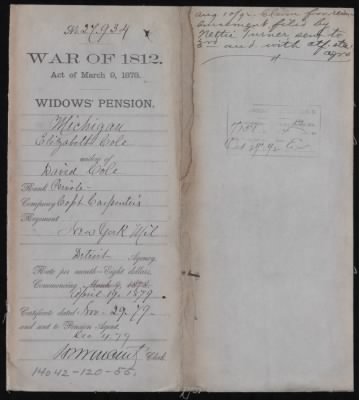 No. 27,934
WAR OF 1812.
Act of March 9, 1878.
WIDOWS' PENSION.
Michigan
Elizabeth Cole
widow of
David Cole
Rank Private
Company Capt Carpenter's
Regiment
New York Mil
Detroit Agency.
Rate per month—Eight dollars.
Commencing March 9, 1878
April 19, 1879
Certificate dated Nov. 29, 79.
and sent to Pension Agent,
Dec 4, 79
Clerk.
14042-120-55.
Aug
filed by
Nettie Turner sent to
3rd and with